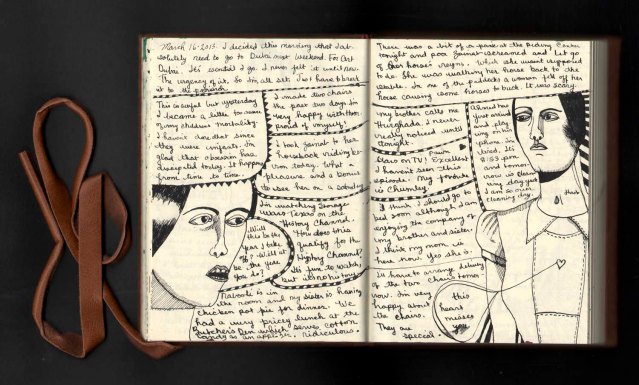 March 16-2013. I decided this morning that I ab-
solutely need to go to Dubai next weekend. For Art
Dubai. It's essential I go. I never felt it until now.
The urgency of it. So I'm all set. I just have to
it to the
This is awful but yesterday
I became a little too aware
of my childrens mortality.
I haven't done that since
they were infants. I'm
glad that obsession has
dissipated today. It happens
from time to time.
I made two chairs
the past two days. I'm
very happy with them.
proud of myself!
I took Zainab to her
horseback riding les-
son today. What a
pleasure and a bonus
to see her on a Saturday
I'm watching Storage
Wars Texas on the
History Channel.
How does this
qualify for the
History Channel?
It's fun to watch,
but its no history.
Will
this be the
year I take
off? Will it
be the year
you do?
is in
the room and my sister is having
chicken pot pie for dinner. We
had a very pricey lunch at the
Butcher's Den which serves cotton
candy as an appetizer. Ridiculous.
There was a bit of a panic at the Riding Centre
tonight and poor Zainab screamed and let go
of her horse's reigns. Which she wasn't supposed
to do. She was walking her horse back to the
stable. In one of the paddocks a woman fell off her
horse causing some horses to buck. It was scary.
My brother calls me
Hurghada. I never
really noticed until
tonight.
Pawn
Stars on TV! Excellent
I haven't seen this
episode. My favorite
is Chumley.
I think I should go to
bed soon although I am
enjoying the company of
my brother and sister.
I think my mom is
here now. Yes she is.
I'll have to arrange delivery
of the two chairs tomor-
row. I'm very
happy about
the chairs.
They are
special.
Ahmed has
just arrived
and is play-
ing on his
iphone. I'm
tired. It's
8:53 pm
and tomor-
row is
very day
is our
cleaning day.
this
heart
misses
you